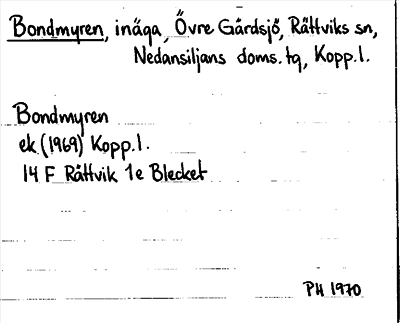 Bondmyren, inäga, Övre Gärdsjö, Rättviks sn,
Nedansiljans doms. tq, Kopp. l.
Bondmyren
ek. (1969) Kopp. l.
14 F Rättvik 1e Blecket
PH 1970